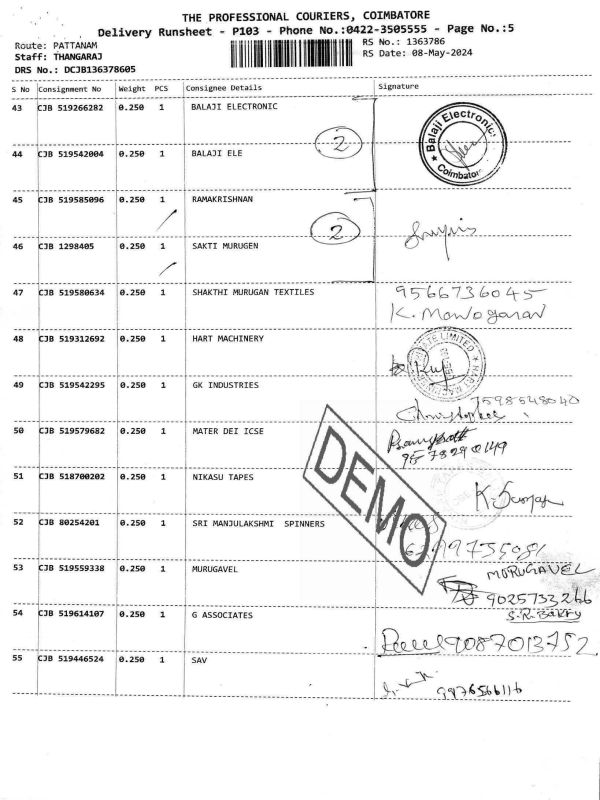 THE PROFESSIONAL COURIERS, COIMBATORE
Delivery Runsheet - P103 - Phone No.:0422-3505555 - Page No.:5
Route: PATTANAM
RS No.: 1363786
Staff: THANGARAJ
RS Date: 08-May-2024
DRS No.: DCJB136378605
S No Consignment No Weight PCS Consignee Details Signature
43 CJB 519266282 0.250 1 BALAJI ELECTRONIC
Balaji Electronic
Coimbator
2
44 CJB 519542004 0.250 1 BALAJI ELE
45 CJB 519585096 0.250 1 RAMAKRISHNAN
2
46 CJB 1298405 0.250 1 SAKTI MURUGEN
47 CJB 519580634 0.250 1 SHAKTHI MURUGAN TEXTILES 9566736045
K. Manogaran
48 CJB 519312692 0.250 1 HART MACHINERY
49 CJB 519542295 0.250 1 GK INDUSTRIES 7598548040
Christopher
50 CJB 519579682 0.250 1 MATER DEI ICSE
51 CJB 518700202 0.250 1 NIKASU TAPES
DEMO
52 CJB 80254201 0.250 1 SRI MANJULAKSHMI SPINNERS
53 CJB 519559338 0.250 1 MURUGAVEL MORUGAVEL
9025733266
54 CJB 519614107 0.250 1 G ASSOCIATES S.R. Bakry
9087013752
55 CJB 519446524 0.250 1 SAV
9976566116